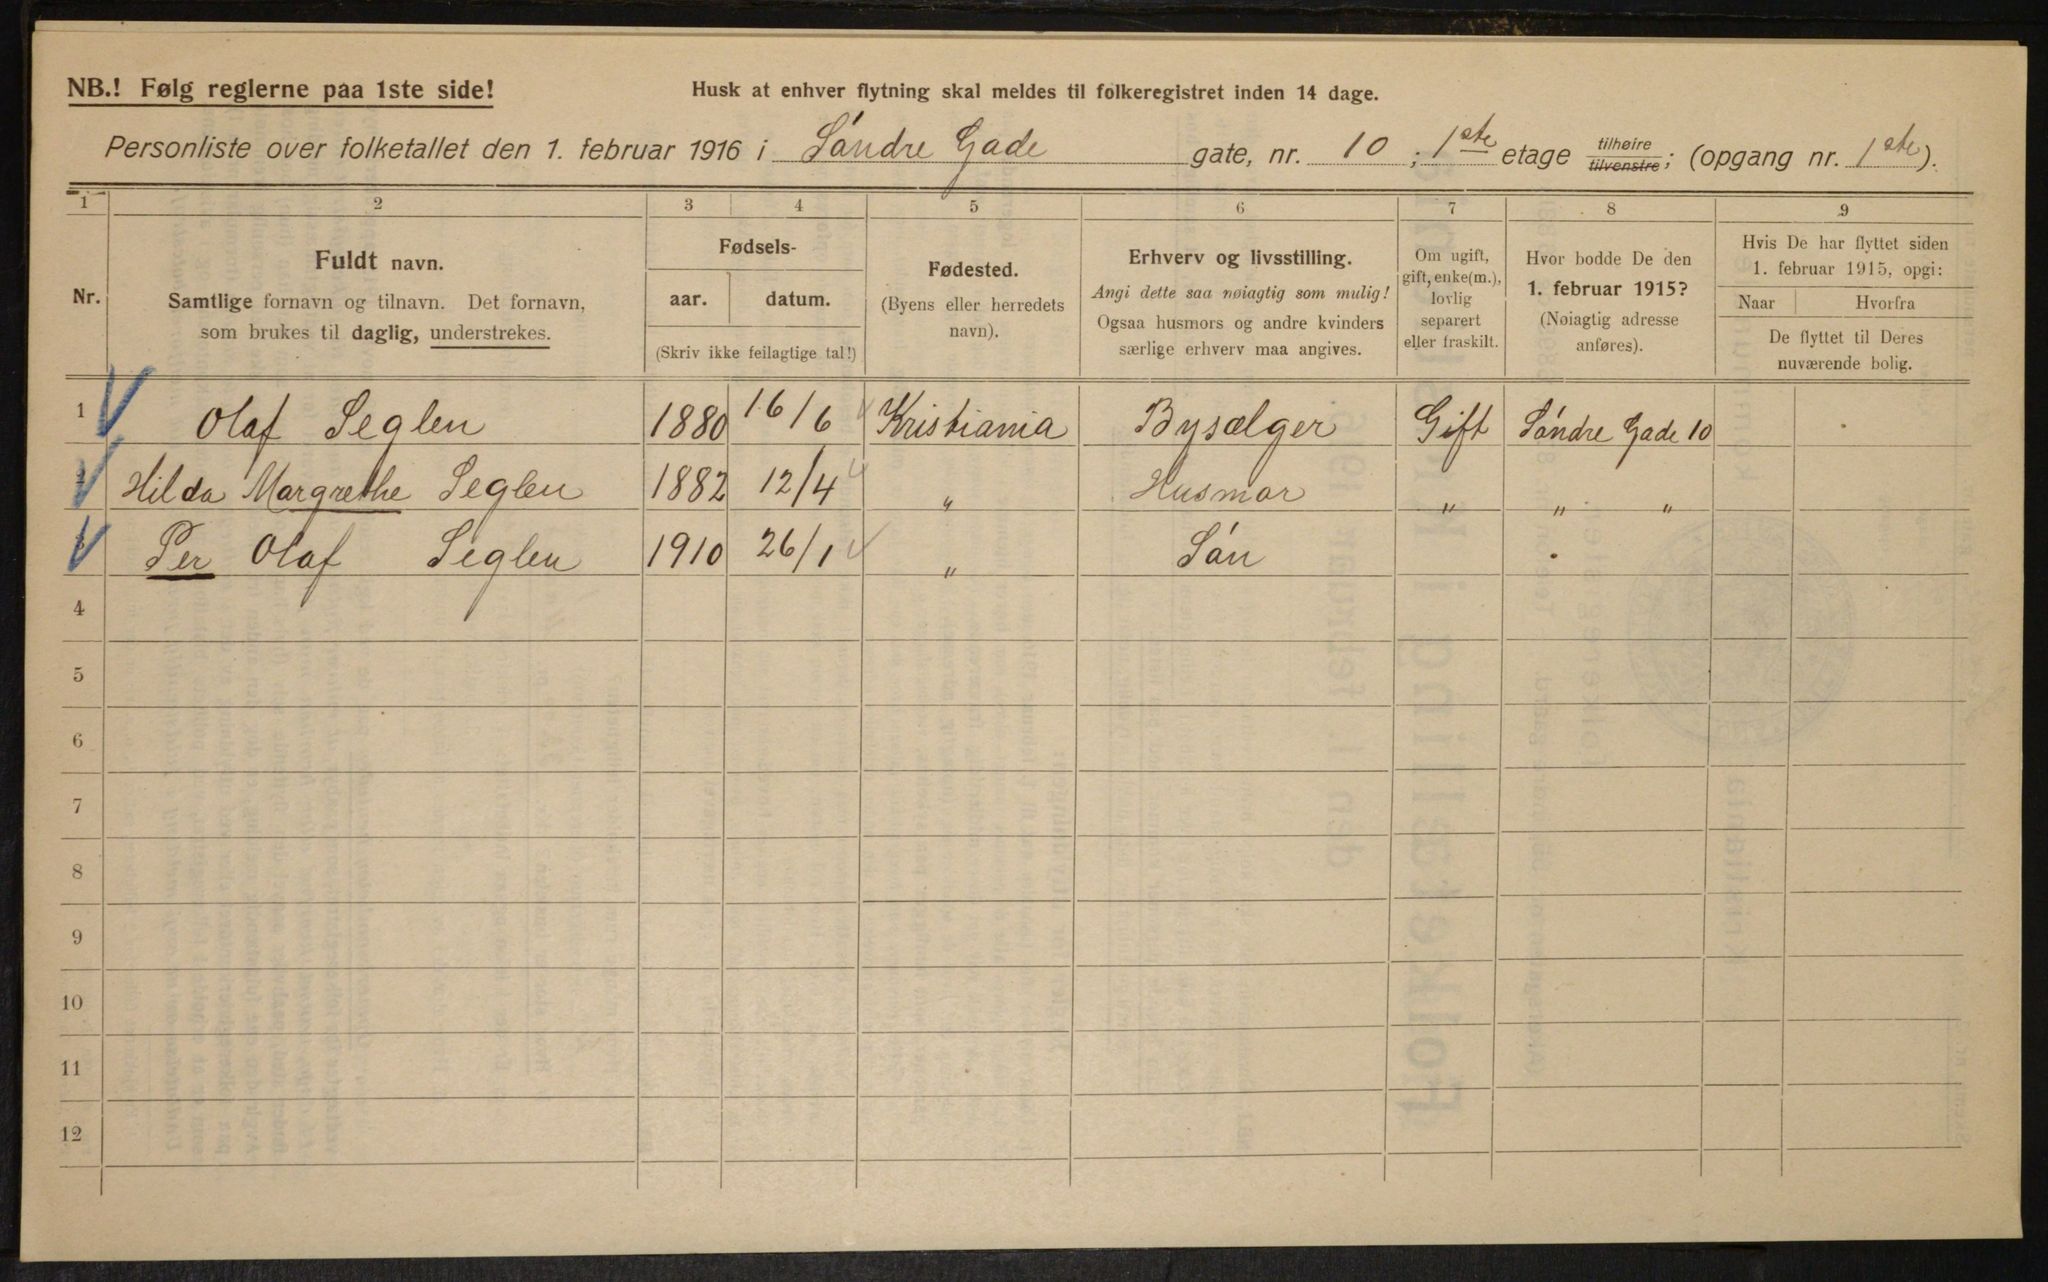 NB.! Følg reglerne paa 1ste side!
Husk at enhver flytning skal meldes til folkeregistret inden 14 dage.
Personliste over folketallet den 1. februar 1916 i Søndre Gade gate, nr. 10 ; 1ste etage tilhøire tilvenstre; (opgang nr. 1ste).
1 2 3 4 5 6 7 8 9
Nr.
Fuldt navn.
Samtlige fornavn og tilnavn. Det fornavn,
som brukes til daglig, understrekes.
Fødsels-
aar. datum.
(Skriv ikke feilagtige tal!)
Fødested.
(Byens eller herredets
navn).
Erhverv og livsstilling.
Angi dette saa nøiagtig som mulig!
Ogsaa husmors og andre kvinders
særlige erhverv maa angives.
Om ugift,
gift, enke(m.),
lovlig
separert
eller fraskilt.
Hvor bodde De den
1. februar 1915?
(Nøiagtig adresse
anføres).
Hvis De har flyttet siden
1. februar 1915, opgi:
Naar Hvorfra
De flyttet til Deres
nuværende bolig.
1 Olaf Seglen 1880 16/6 Kristiania Bysælger Gift Søndre Gade 10
2 Hilda Margrethe Seglen 1882 12/4 " Husmor " " "
3 Per Olaf Seglen 1910 26/1 " Søn
4
5
6
7
8
9
10
11
12